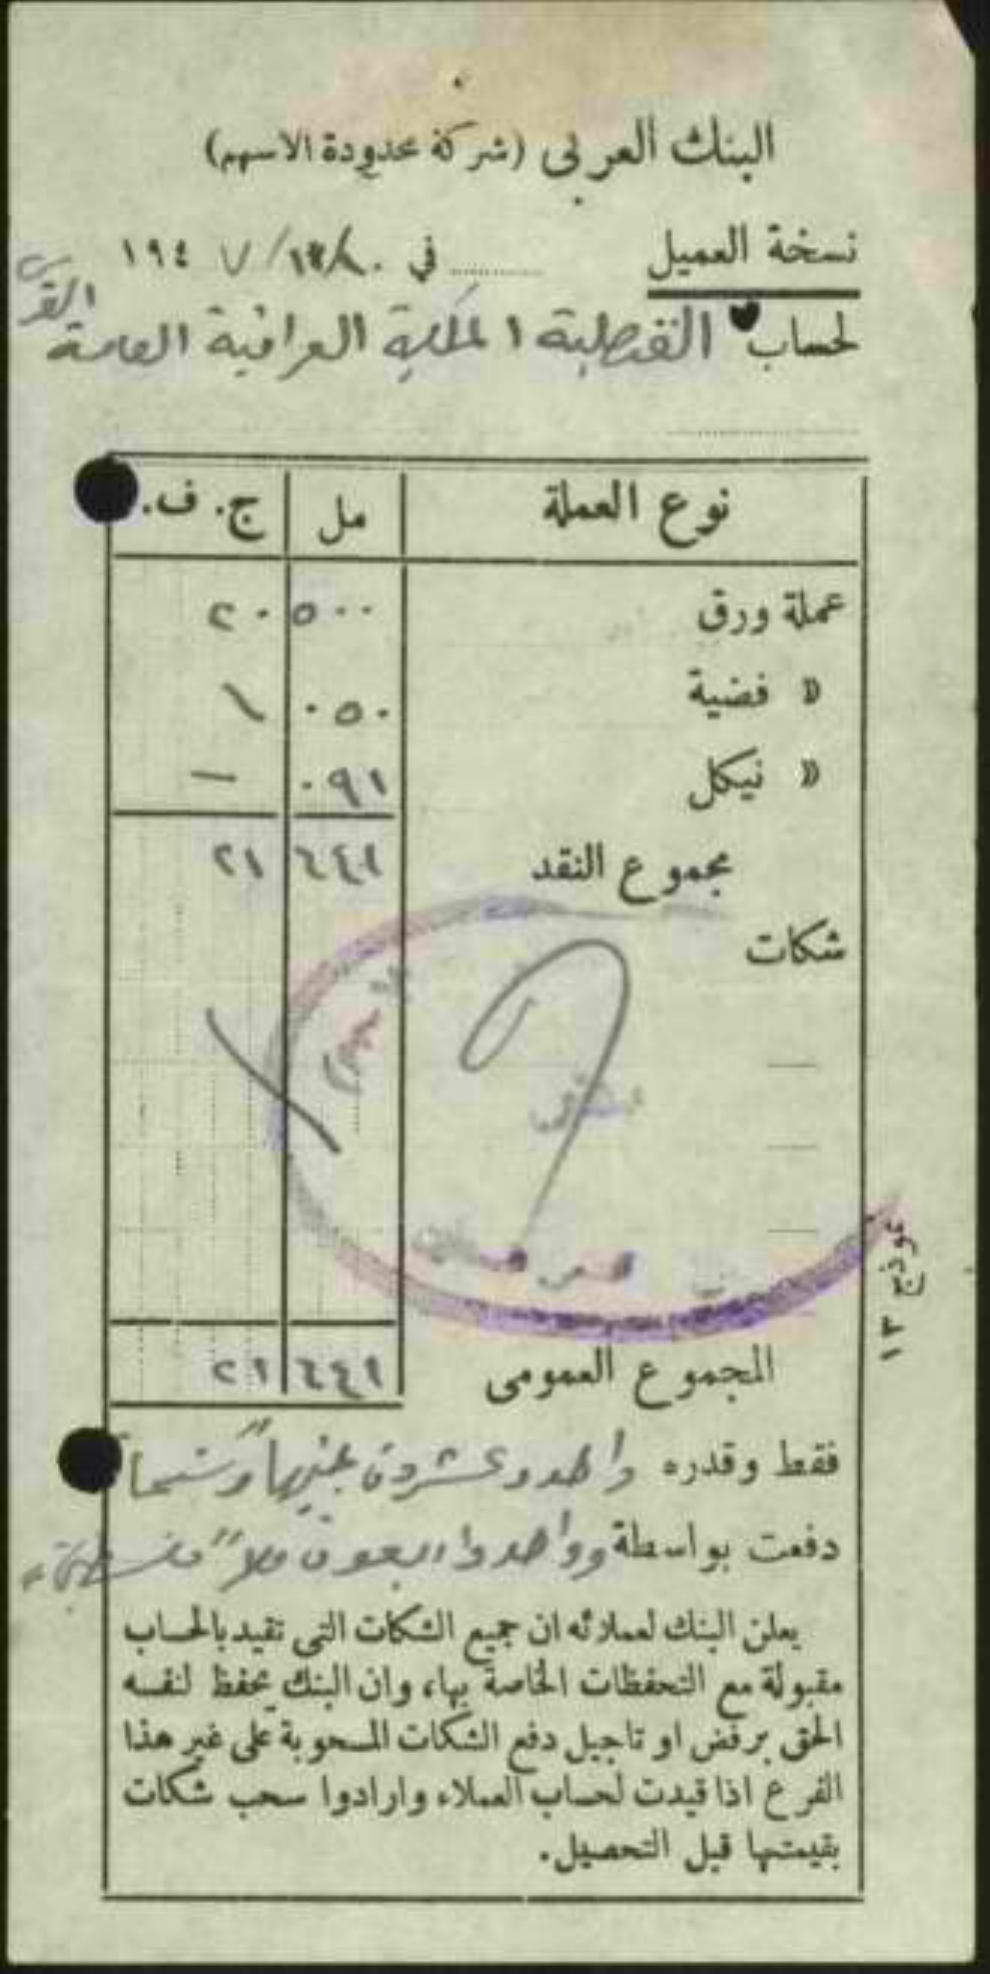 البنك العربى (شركة محدودة الاسهم)
نسخة العميل
في ١٩٤٧/١٢/٨٠
القدس
لحساب القنصلية الملكية العراقية العامة
نوع العملة مل ج. ف.
عملة ورق ٥٠٠ ٢٠
» فضية ٠٥٠ ١
» نيكل ٠٩١ —
مجموع النقد ٦٤١ ٢١
شكات
المجموع العمومى ٦٤١ ٢١
فقط وقدره واحد وعشرون جنيهاً وستماية
دفعت بواسطة وواحد واربعون ملاً فلسطينياً
يعلن البنك لعملائه ان جميع الشكات التى تقيد بالحساب
مقبولة مع التحفظات الخاصة بها، وان البنك يحفظ لنفسه
الحق برفض او تاجيل دفع الشكات المسحوبة على غير هذا
الفرع اذا قيدت لحساب العملاء وارادوا سحب شكات
بقيمتها قبل التحصيل.
نموذج ١٣